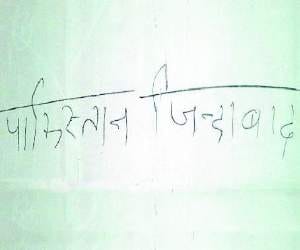 पाकिस्तान जिन्दाबाद